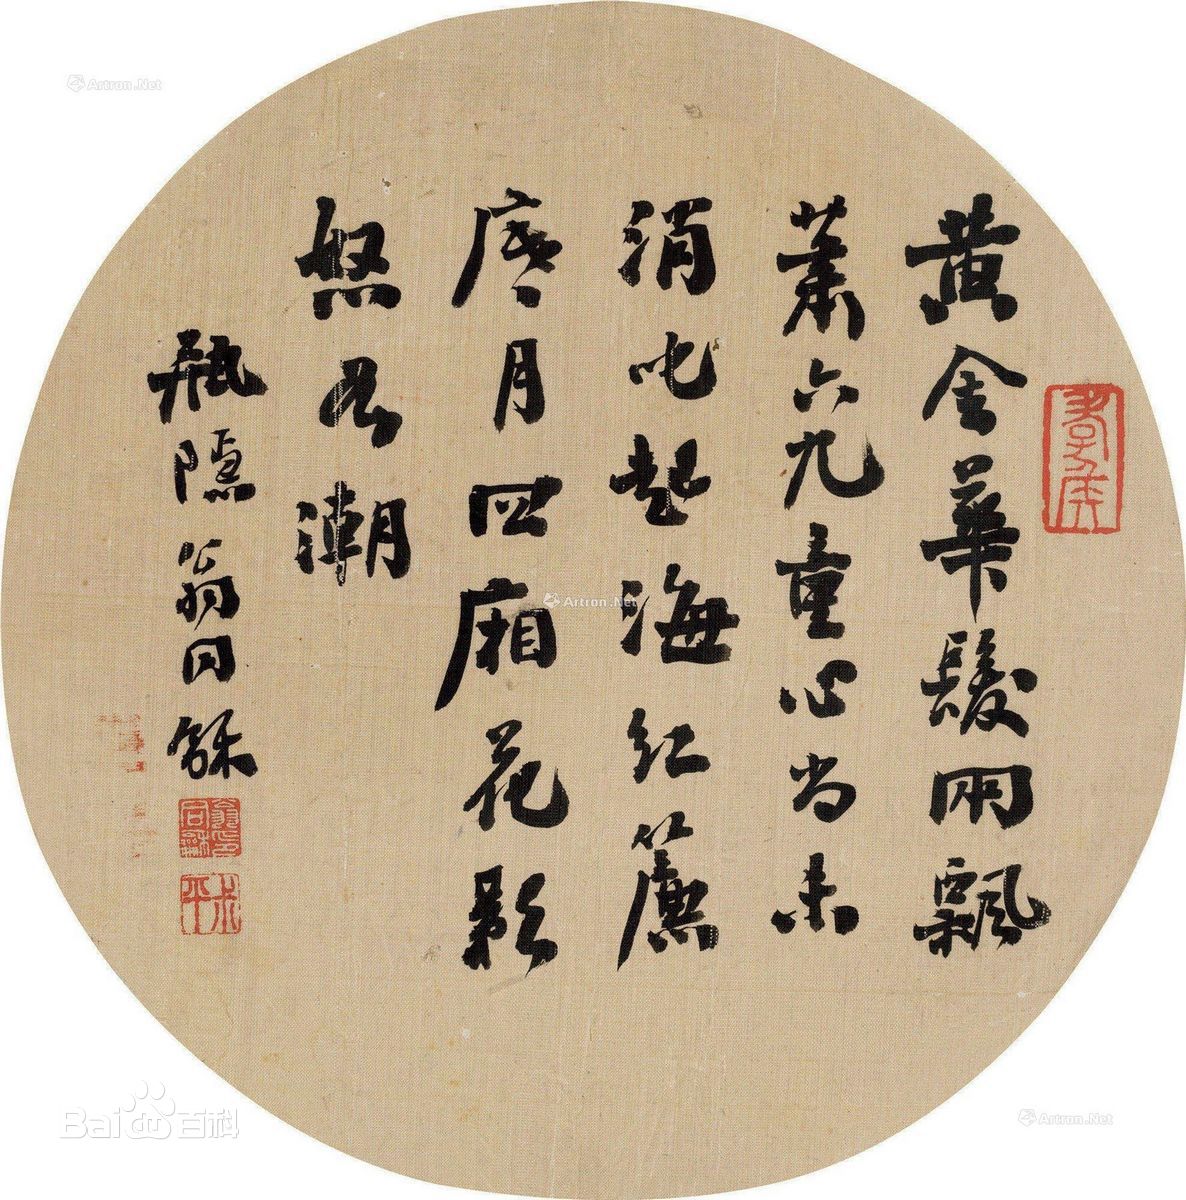 黃金華髮兩飄
蕭六九童心尚未
消叱起海紅簾
底月四廂花影
怒於潮
瓶隱翁同龢
翁同龢印
叔平
Artron.Net
Artron.Net
Artron.Net
Bai百科